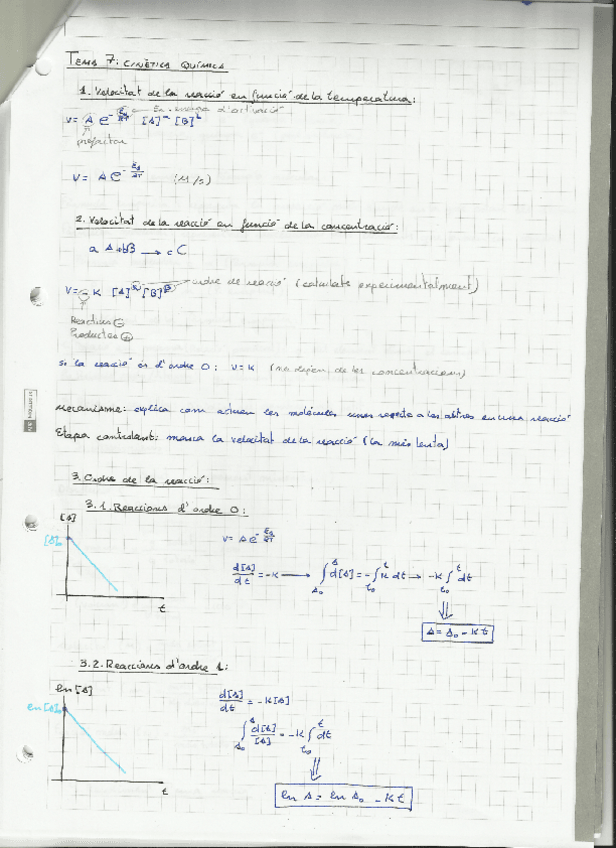 TEMA 7: CINÈTICA QUÍMICA
1. Velocitat de la reacció en funció de la temperatura:
V = A e^(-Ea/RT) [A]^a [B]^b ← Ea: energia d'activació
prefactor
V = A e^(-Ea/RT) (M/s)
2. Velocitat de la reacció en funció de la concentració:
a A + bB → c C
V = - K [A]^α [B]^β → ordre de reacció (calculats experimentalment)
Reactius ⊖
Productes ⊕
Si la reacció és d'ordre 0: V = K (no depèn de les concentracions)
Mecanisme: explica com actuen les molècules unes respecte a les altres en una reacció
Etapa controlant: marca la velocitat de la reacció (la més lenta)
3. Ordre de la reacció:
3.1. Reaccions d'ordre 0:
[A]
[A]₀
t
V = A e^(-Ea/RT)
d[A]/dt = -K → ∫_{A₀}^{A} d[A] = -∫_{t₀}^{t} K dt → -K ∫_{t₀}^{t} dt
A = A₀ - Kt
3.2. Reaccions d'ordre 1:
ln [A]
ln [A]₀
t
d[A]/dt = -K[A]
∫_{A₀}^{A} d[A]/[A] = -K ∫_{t₀}^{t} dt
ln A = ln A₀ - Kt